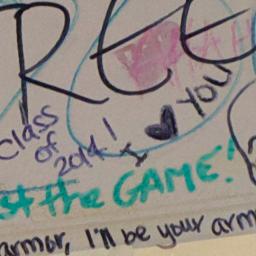 REE
YOU
class
of
2014!
I ♥
st the GAME!
armor, I'll be your arm